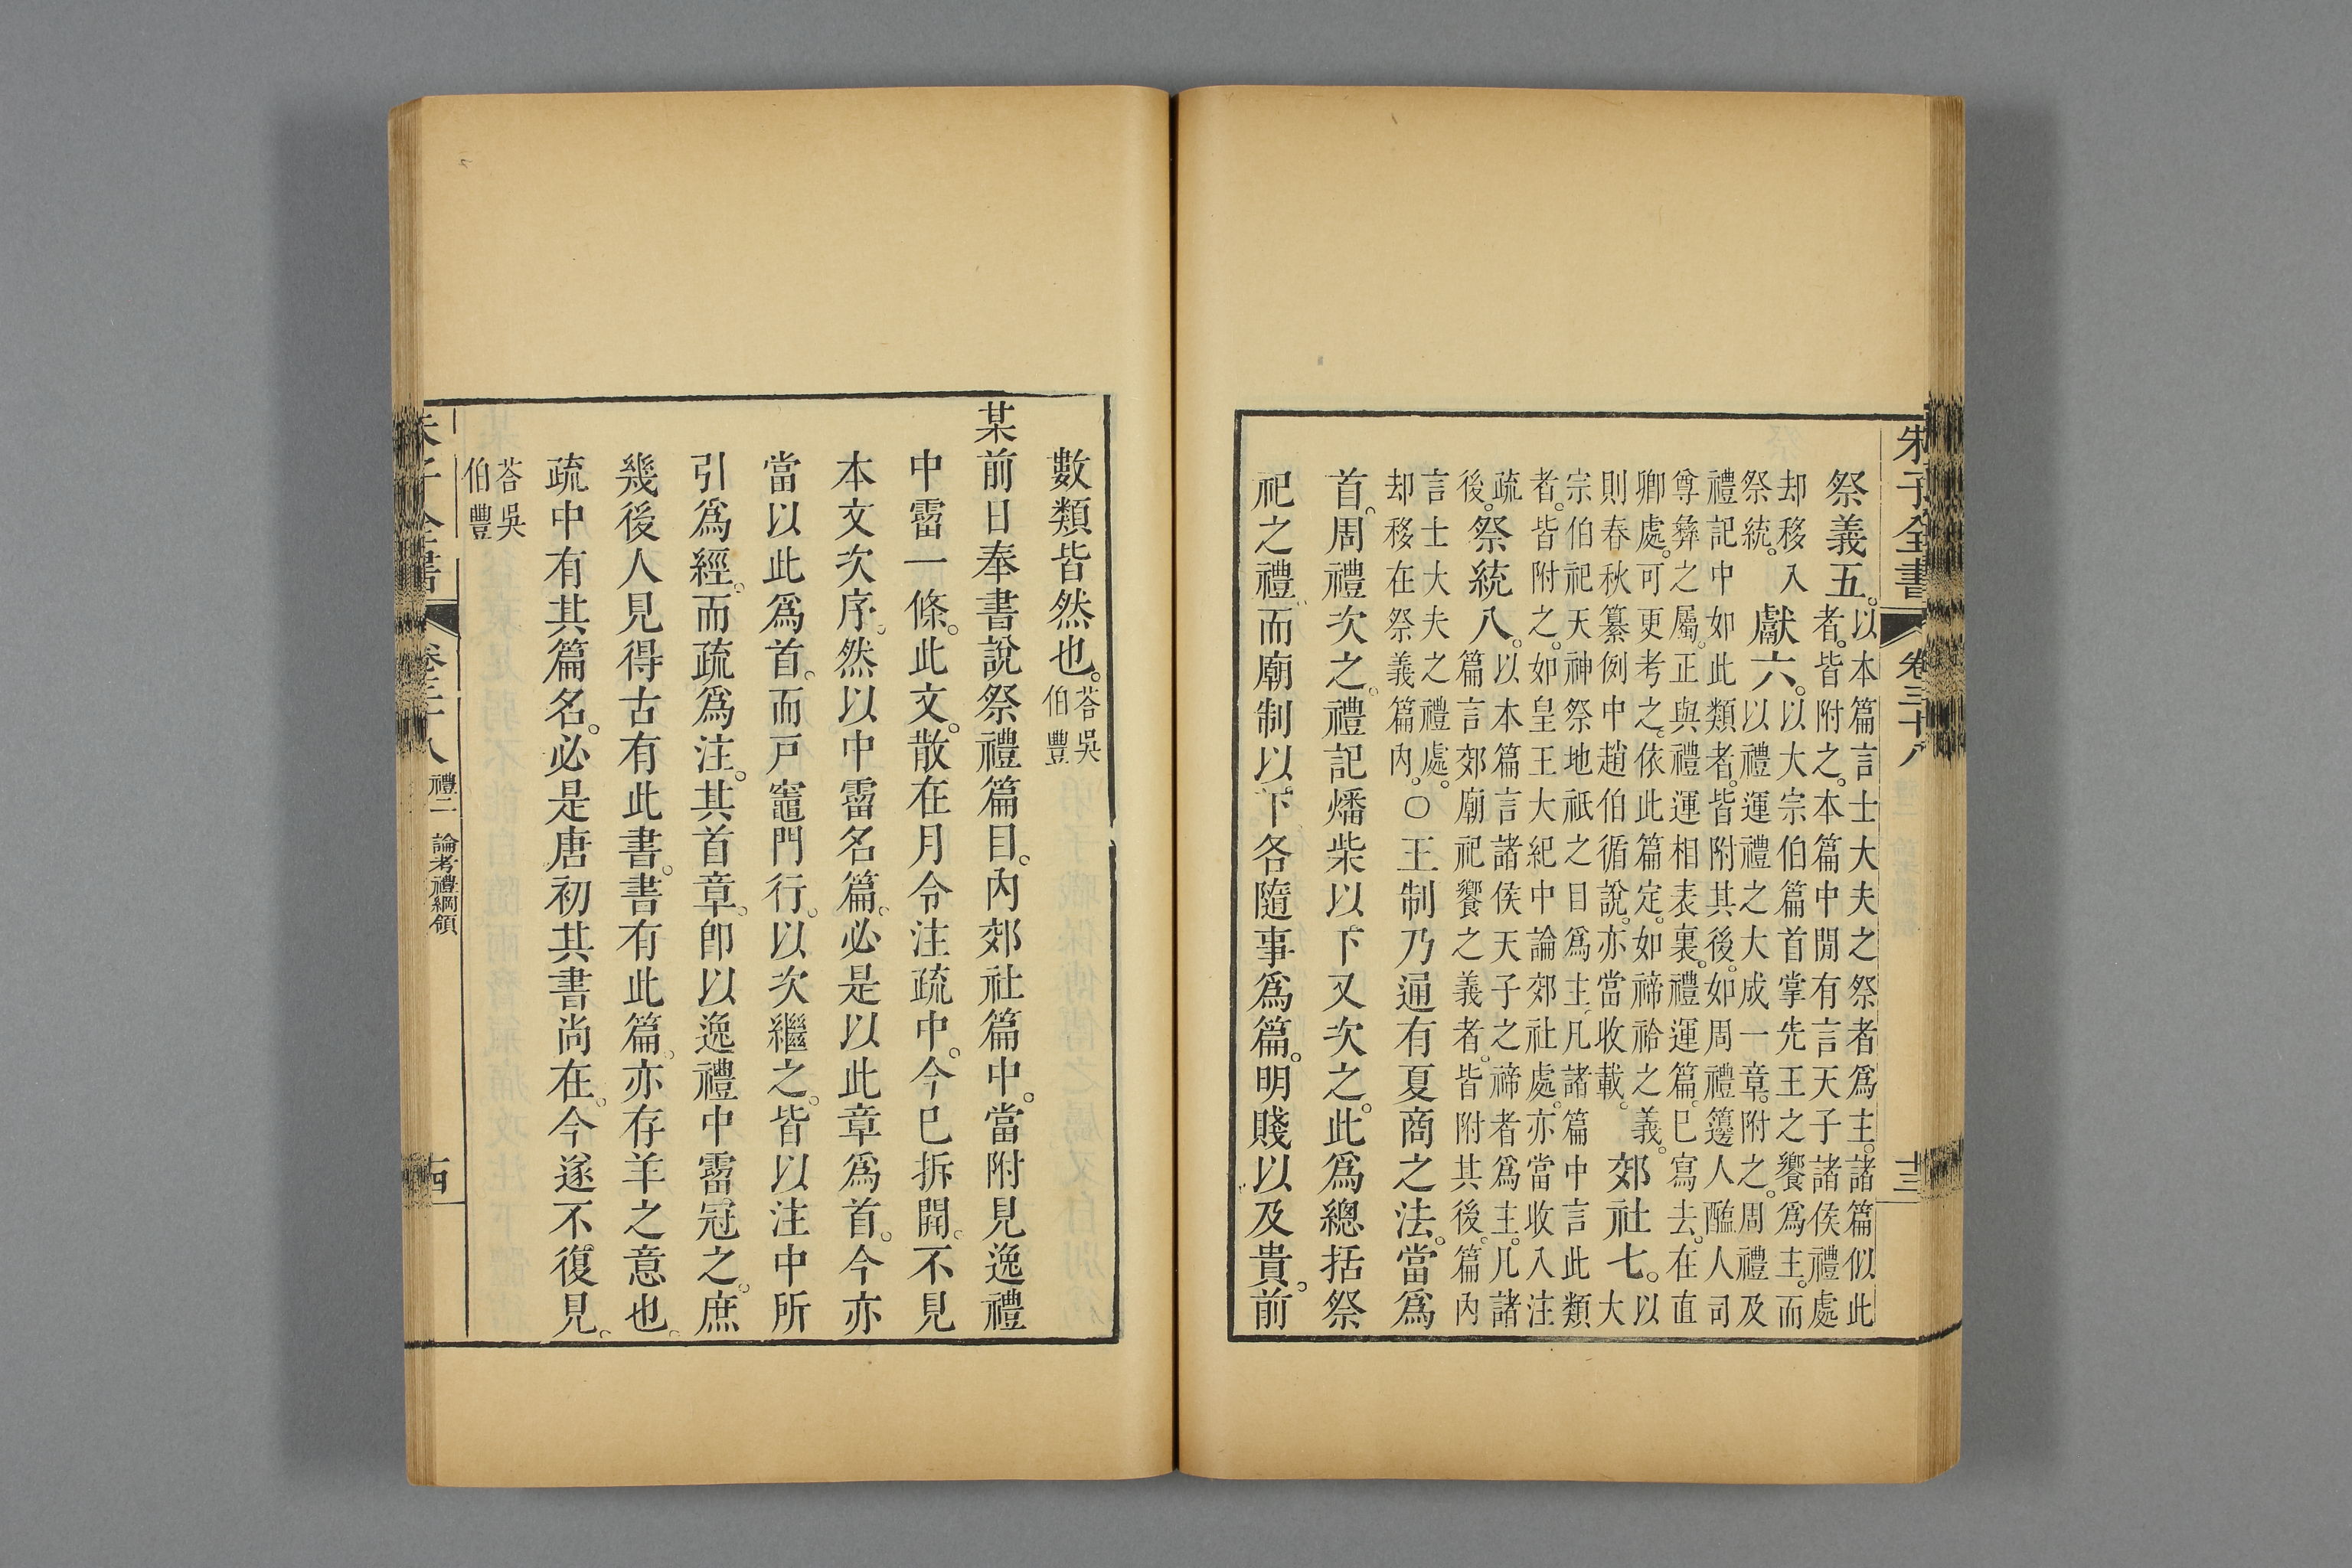 朱子全書 卷三十八 十三
祭義五。以本篇言士大夫之祭者爲主。諸篇似此
者。皆附之。本篇中閒有言天子諸侯禮處
却移入
祭統。
獻六。以大宗伯篇首掌先王之饗爲主。而
以禮運禮之大成一章。附之。周禮及
禮記中如此類者。皆附其後。如周禮籩人醢人司
尊彝之屬。正與禮運相表裏。禮運篇已寫去。在直
卿處。可更考之。依此篇定。如禘祫之義。
則春秋纂例中趙伯循說。亦當收載。
郊社七。以
大
宗伯祀天神祭地祇之目爲主。凡諸篇中言此類
者。皆附之。如皇王大紀中論郊社處。亦當收入注
疏
後。
祭統八。以本篇言諸侯天子之禘者爲主。凡諸
篇言郊廟祀饗之義者。皆附其後。篇內
言士大夫之禮處。
却移在祭義篇內。
○王制乃通有夏商之法。當爲
首。周禮次之。禮記燔柴以下又次之。此爲總括祭
祀之禮。而廟制以下各隨事爲篇。明賤以及貴。前
數類皆然也。荅吳
伯豐
某前日奉書說祭禮篇目。內郊社篇中。當附見逸禮
中霤一條。此文。散在月令注疏中。今已拆開。不見
本文次序。然以中霤名篇。必是以此章爲首。今亦
當以此爲首。而戸竈門行。以次繼之。皆以注中所
引爲經。而疏爲注。其首章。卽以逸禮中霤冠之。庶
幾後人見得古有此書。書有此篇。亦存羊之意也。
疏中有其篇名。必是唐初其書尚在。今遂不復見。
荅吳
伯豐
朱子全書 卷三十八 禮二 論考禮綱領